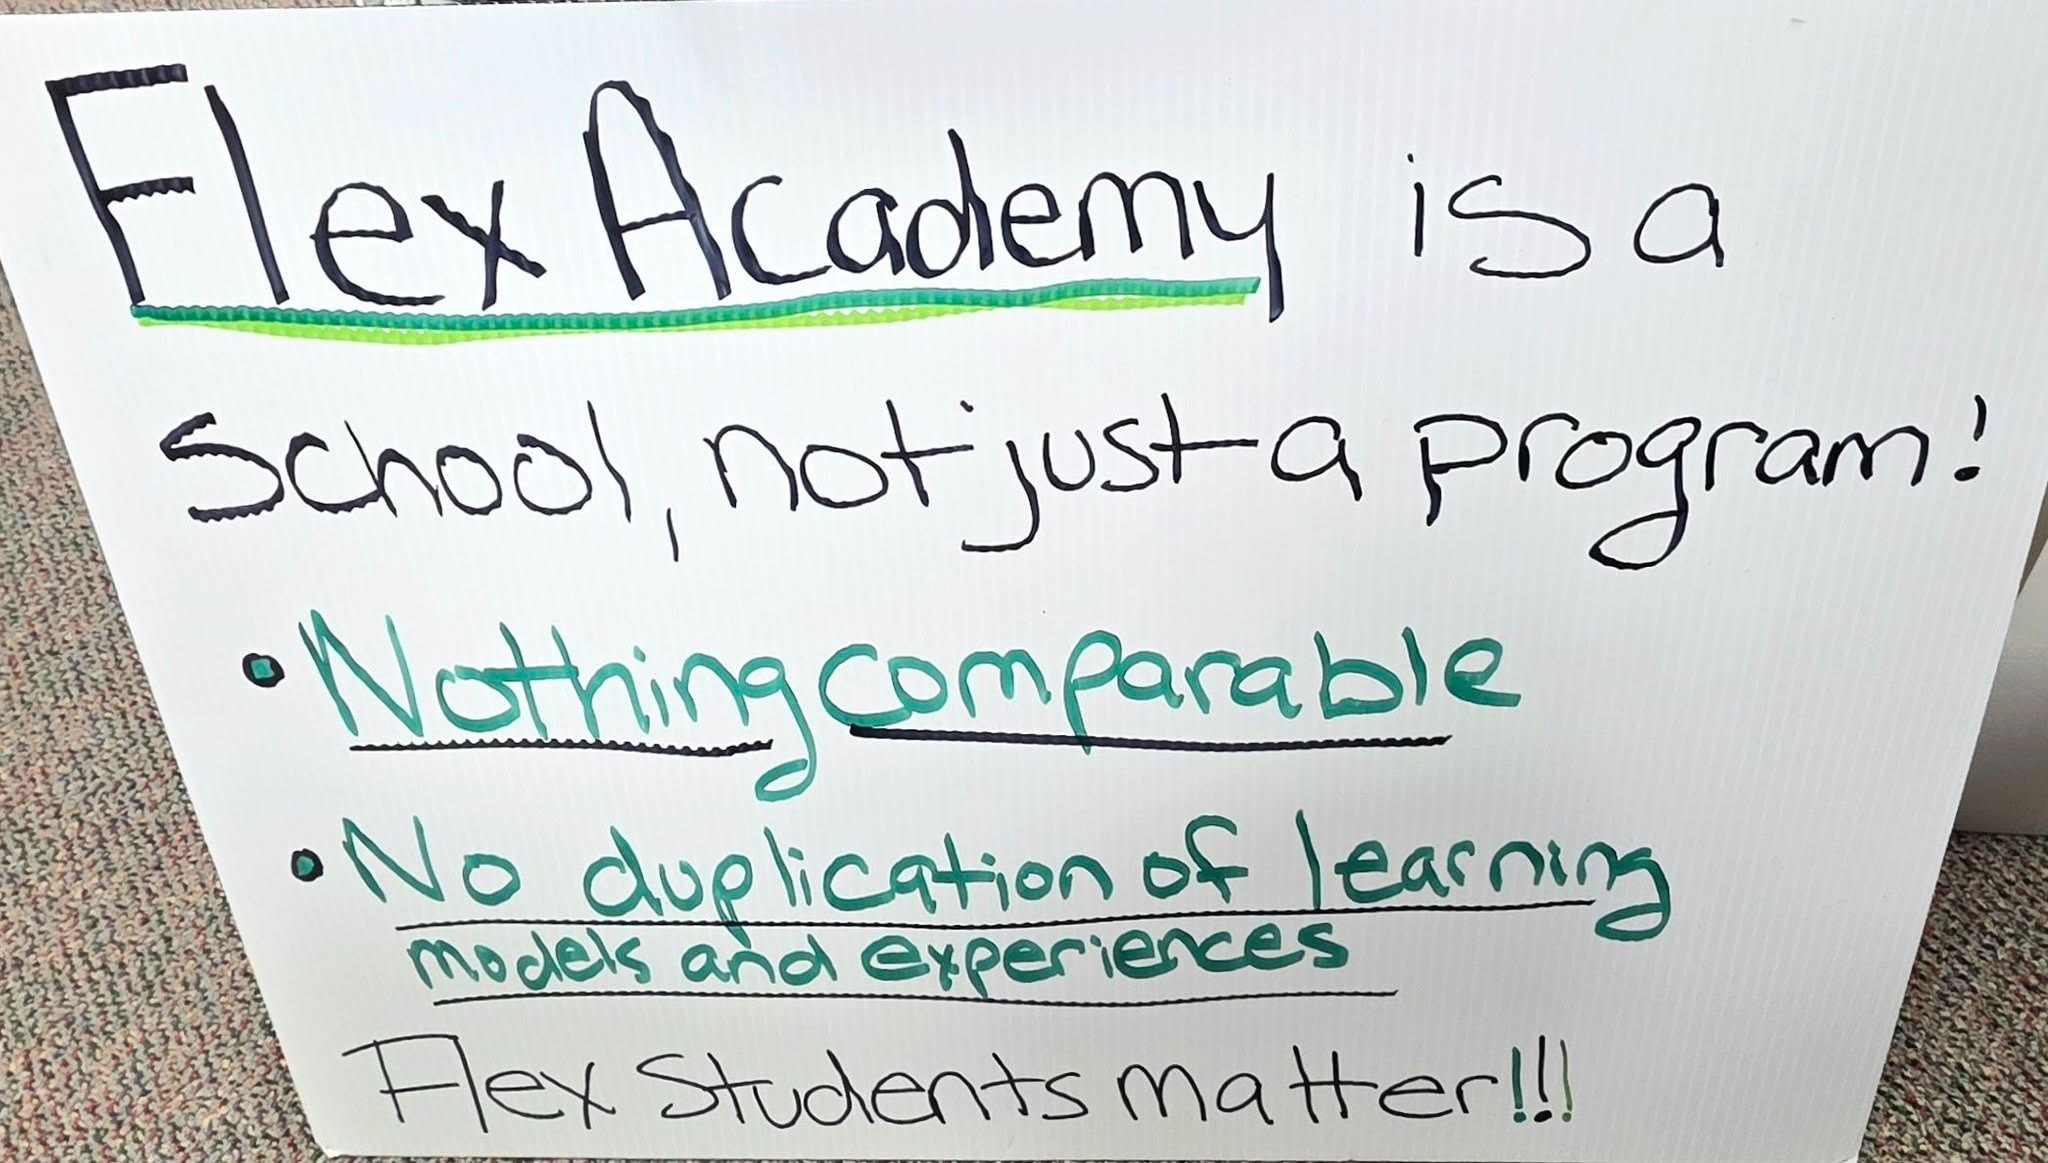 Flex Academy is a
school, not just a program!
• Nothing comparable
• No duplication of learning
models and experiences
Flex Students matter!!!